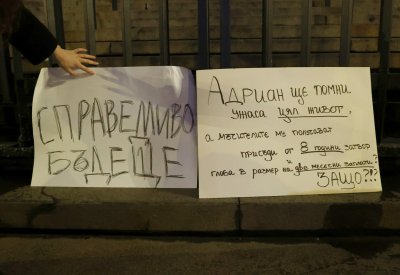 СПРАВЕДЛИВО
БЪДЕЩЕ
АДРИАН ЩЕ ПОМНИ
УЖАСА ЦЯЛ ЖИВОТ,
А МЪЧИТЕЛИТЕ МУ ПОЛУЧАВАТ
ПРИСЪДИ ОТ 8 ГОДИНИ ЗАТВОР
И
ГЛОБА В РАЗМЕР НА ДВЕ МЕСЕЧНИ ЗАПЛАТИ?
ЗАЩО?!?